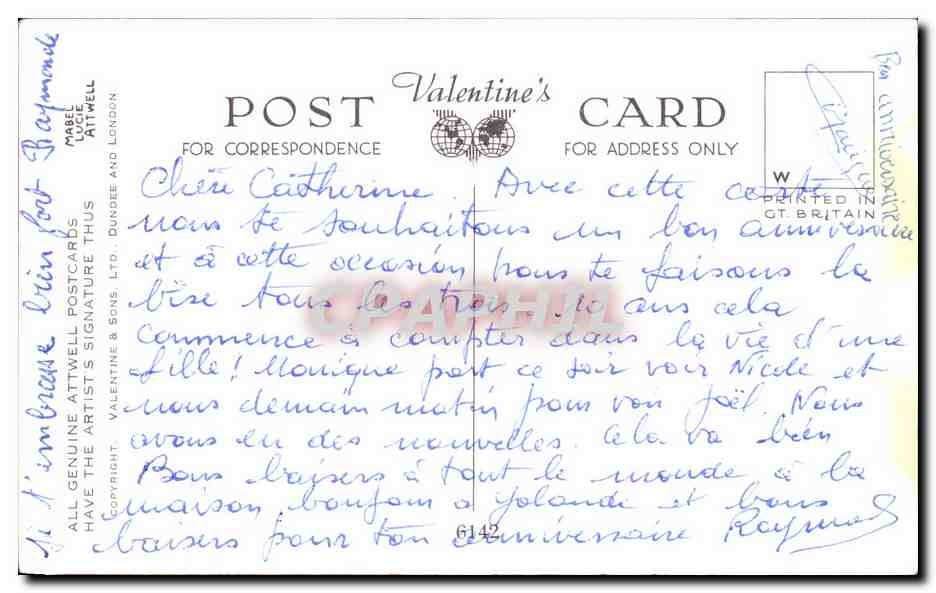 Valentine's
POST CARD
FOR CORRESPONDENCE
FOR ADDRESS ONLY
W
PRINTED IN
GT. BRITAIN
Bon anniversaire
Chère Catherine. Avec cette carte
nous te souhaitons un bon anniversaire
et à cette occasion nous te faisons la
bise tous les trois. 10 ans cela
commence à compter dans la vie d'une
fille! Monique part ce soir voir Nicole et
nous demain matin pour voir Joël. Nous
avons eu des nouvelles. Cela va bien
Bons baisers à tout le monde à la
maison bonjour a Yolande et bons
baisers pour ton anniversaire Raymond
6142
CPAPHIL
t'embrasse bien fort Raymonde
MABEL
LUCIE
ATTWELL
ALL GENUINE ATTWELL POSTCARDS
HAVE THE ARTIST'S SIGNATURE THUS
COPYRIGHT. VALENTINE & SONS, LTD. DUNDEE AND LONDON